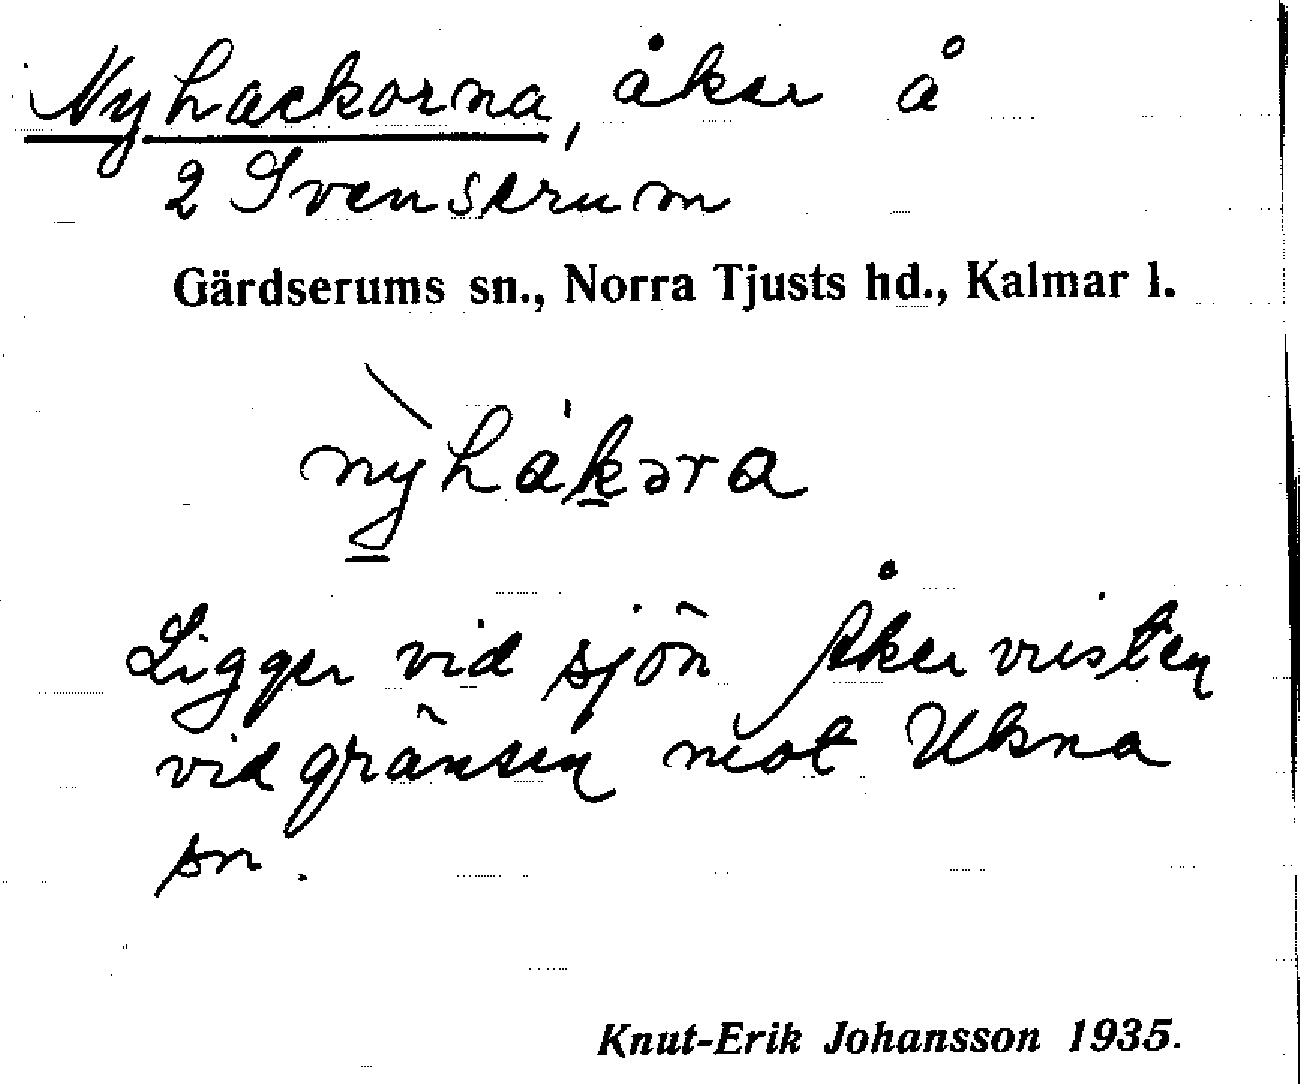 Nyhackorna, åker å
2 Svenserum
Gärdserums sn., Norra Tjusts hd., Kalmar l.
nỳhákəra
Ligger vid sjön Åkervristen
vid gränsen mot Ukna
sn.
Knut-Erik Johansson 1935.